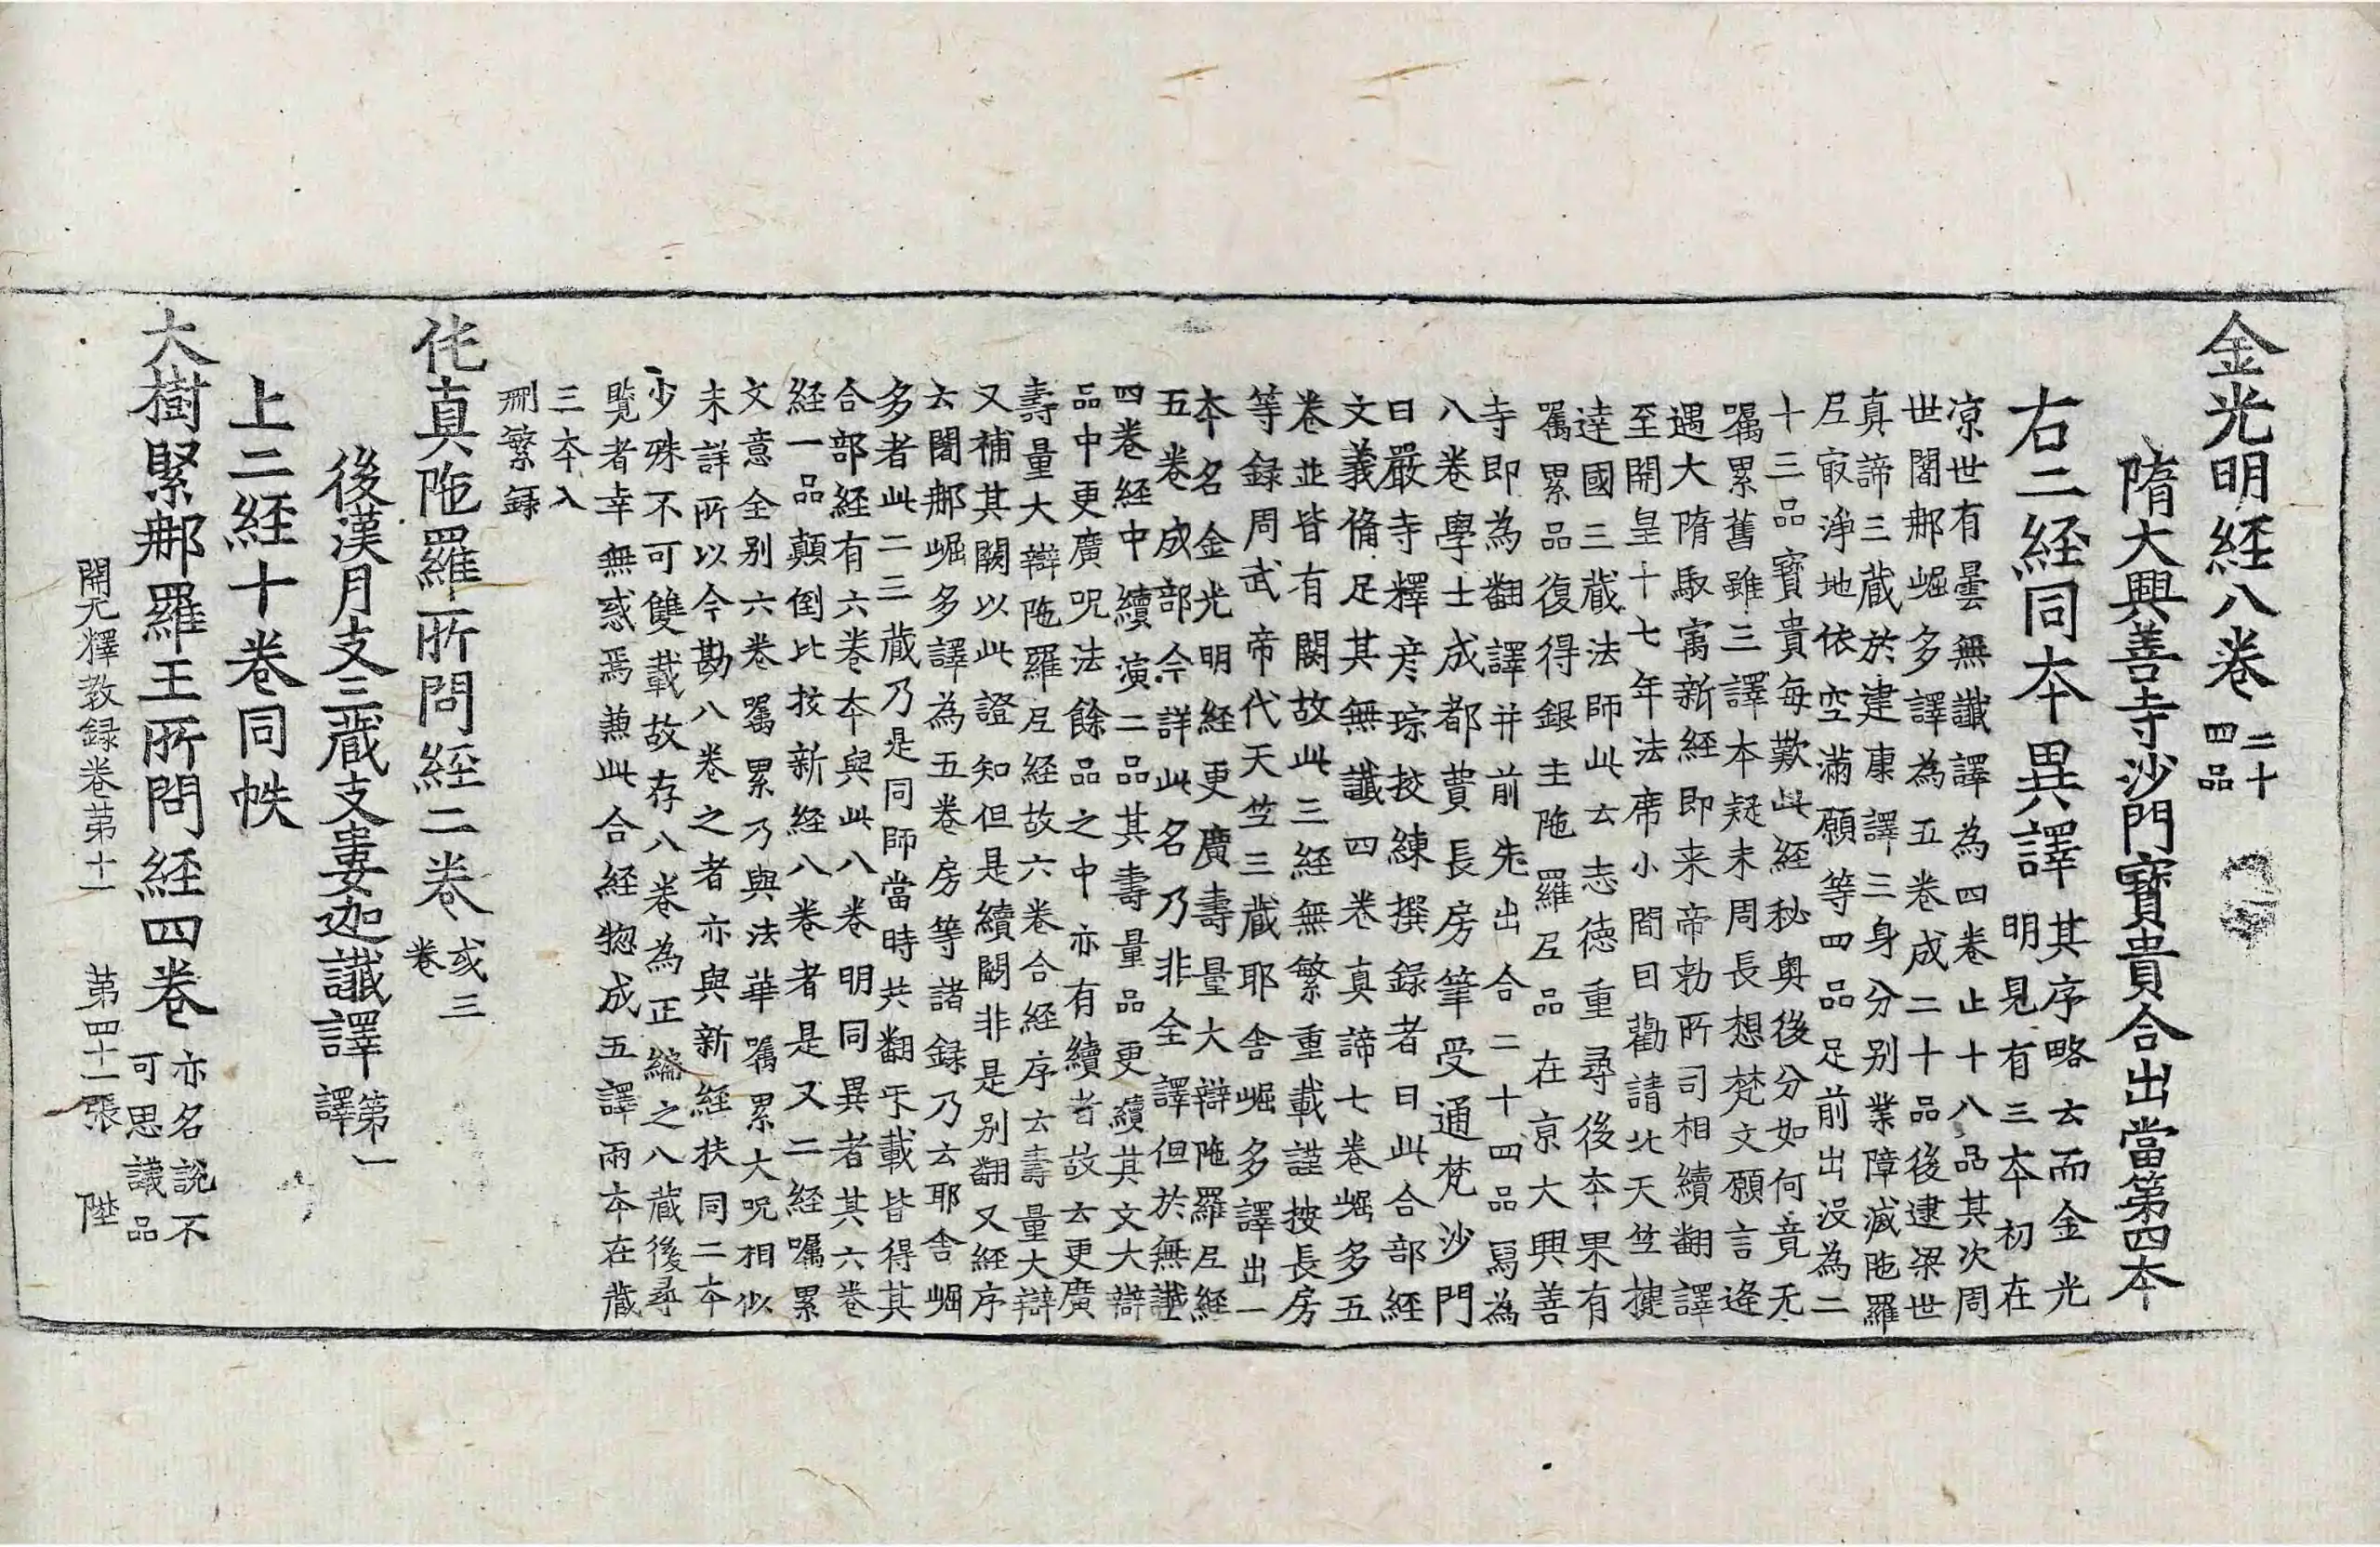 金光明経八卷 二十四品
隋大興善寺沙門寶貴合出當第四本
右二経同本異譯 其序略云而金光
明見有三本初在
凉世有曇無讖譯為四卷止十八品其次周
世闍𨚗崛多譯為五卷成二十品後逮梁世
真諦三蔵於建康譯三身分别業障滅陁羅
𡰱㝡淨地依空滿願等四品足前出没為二
十三品寶貴每歎此経秘奥後分如何竟无
囑累舊雖三譯本疑未周長想梵文願言逄
遇大隋馭㝢新経即来帝勅所司相續翻譯
至開皇十七年法席小閒曰勸請北天笁揵
達國三蔵法師此云志德重尋後本果有
囑累品復得銀主陁羅𡰱品在京大興善
寺即為翻譯并前先出合二十四品冩為
八卷學士成都費長房筆受通梵沙門
日嚴寺釋彦琮挍練撰録者曰此合部経
文義俻足其無讖四卷真諦七卷崛多五
卷並皆有闕故此三経無繁重載謹按長房
等録周武帝代天笁三蔵耶舎崛多譯出一
本名金光明経更廣壽量大辯陁羅𡰱経
五卷成部今詳此名乃非全譯但於無讖
四卷経中續演二品其壽量品更續其文大辯
品中更廣呪法餘品之中亦有續者故云更廣
壽量大辯陁羅𡰱経故六卷合経序云壽量大辯
又補其闕以此證知但是續闕非是别翻又経序
云闍𨚗崛多譯為五卷房等諸録乃云耶舎崛
多者此二三蔵乃是同師當時共翻㸦載皆得其
合部経有六卷本與此八卷明同異者其六卷
経一品顛倒比挍新経八卷者是又二経囑累
文意全别六卷囑累乃與法華囑累大呪相似
未詳所以今勘八卷之者亦與新経扶同二本
少殊不可雙載故存八卷為正編之入蔵後尋
覽者幸無惑焉兼此合経惣成五譯兩本在蔵
三本入
刪繁録
伅真陁羅所問経二卷 或三卷
後漢月支三蔵支婁迦讖譯 第一譯
上二経十卷同帙
大樹緊𨚗羅王所問経四卷 亦名說不可思議品
開元釋教録卷苐十一 苐四十二張 陛